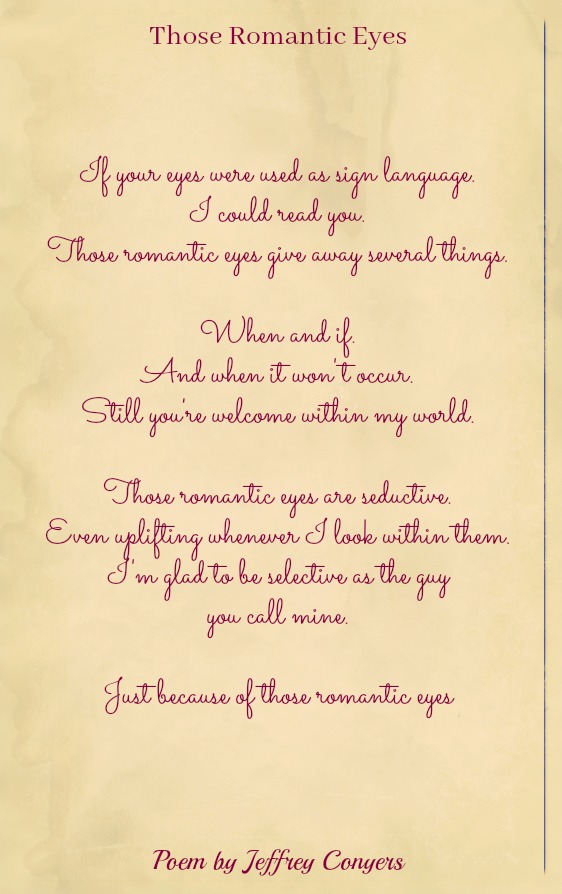 Those Romantic Eyes
If your eyes were used as sign language.
I could read you.
Those romantic eyes give away several things.
When and if.
And when it won't occur.
Still you're welcome within my world.
Those romantic eyes are seductive.
Even uplifting whenever I look within them.
I'm glad to be selective as the guy
you call mine.
Just because of those romantic eyes
Poem by Jeffrey Conyers